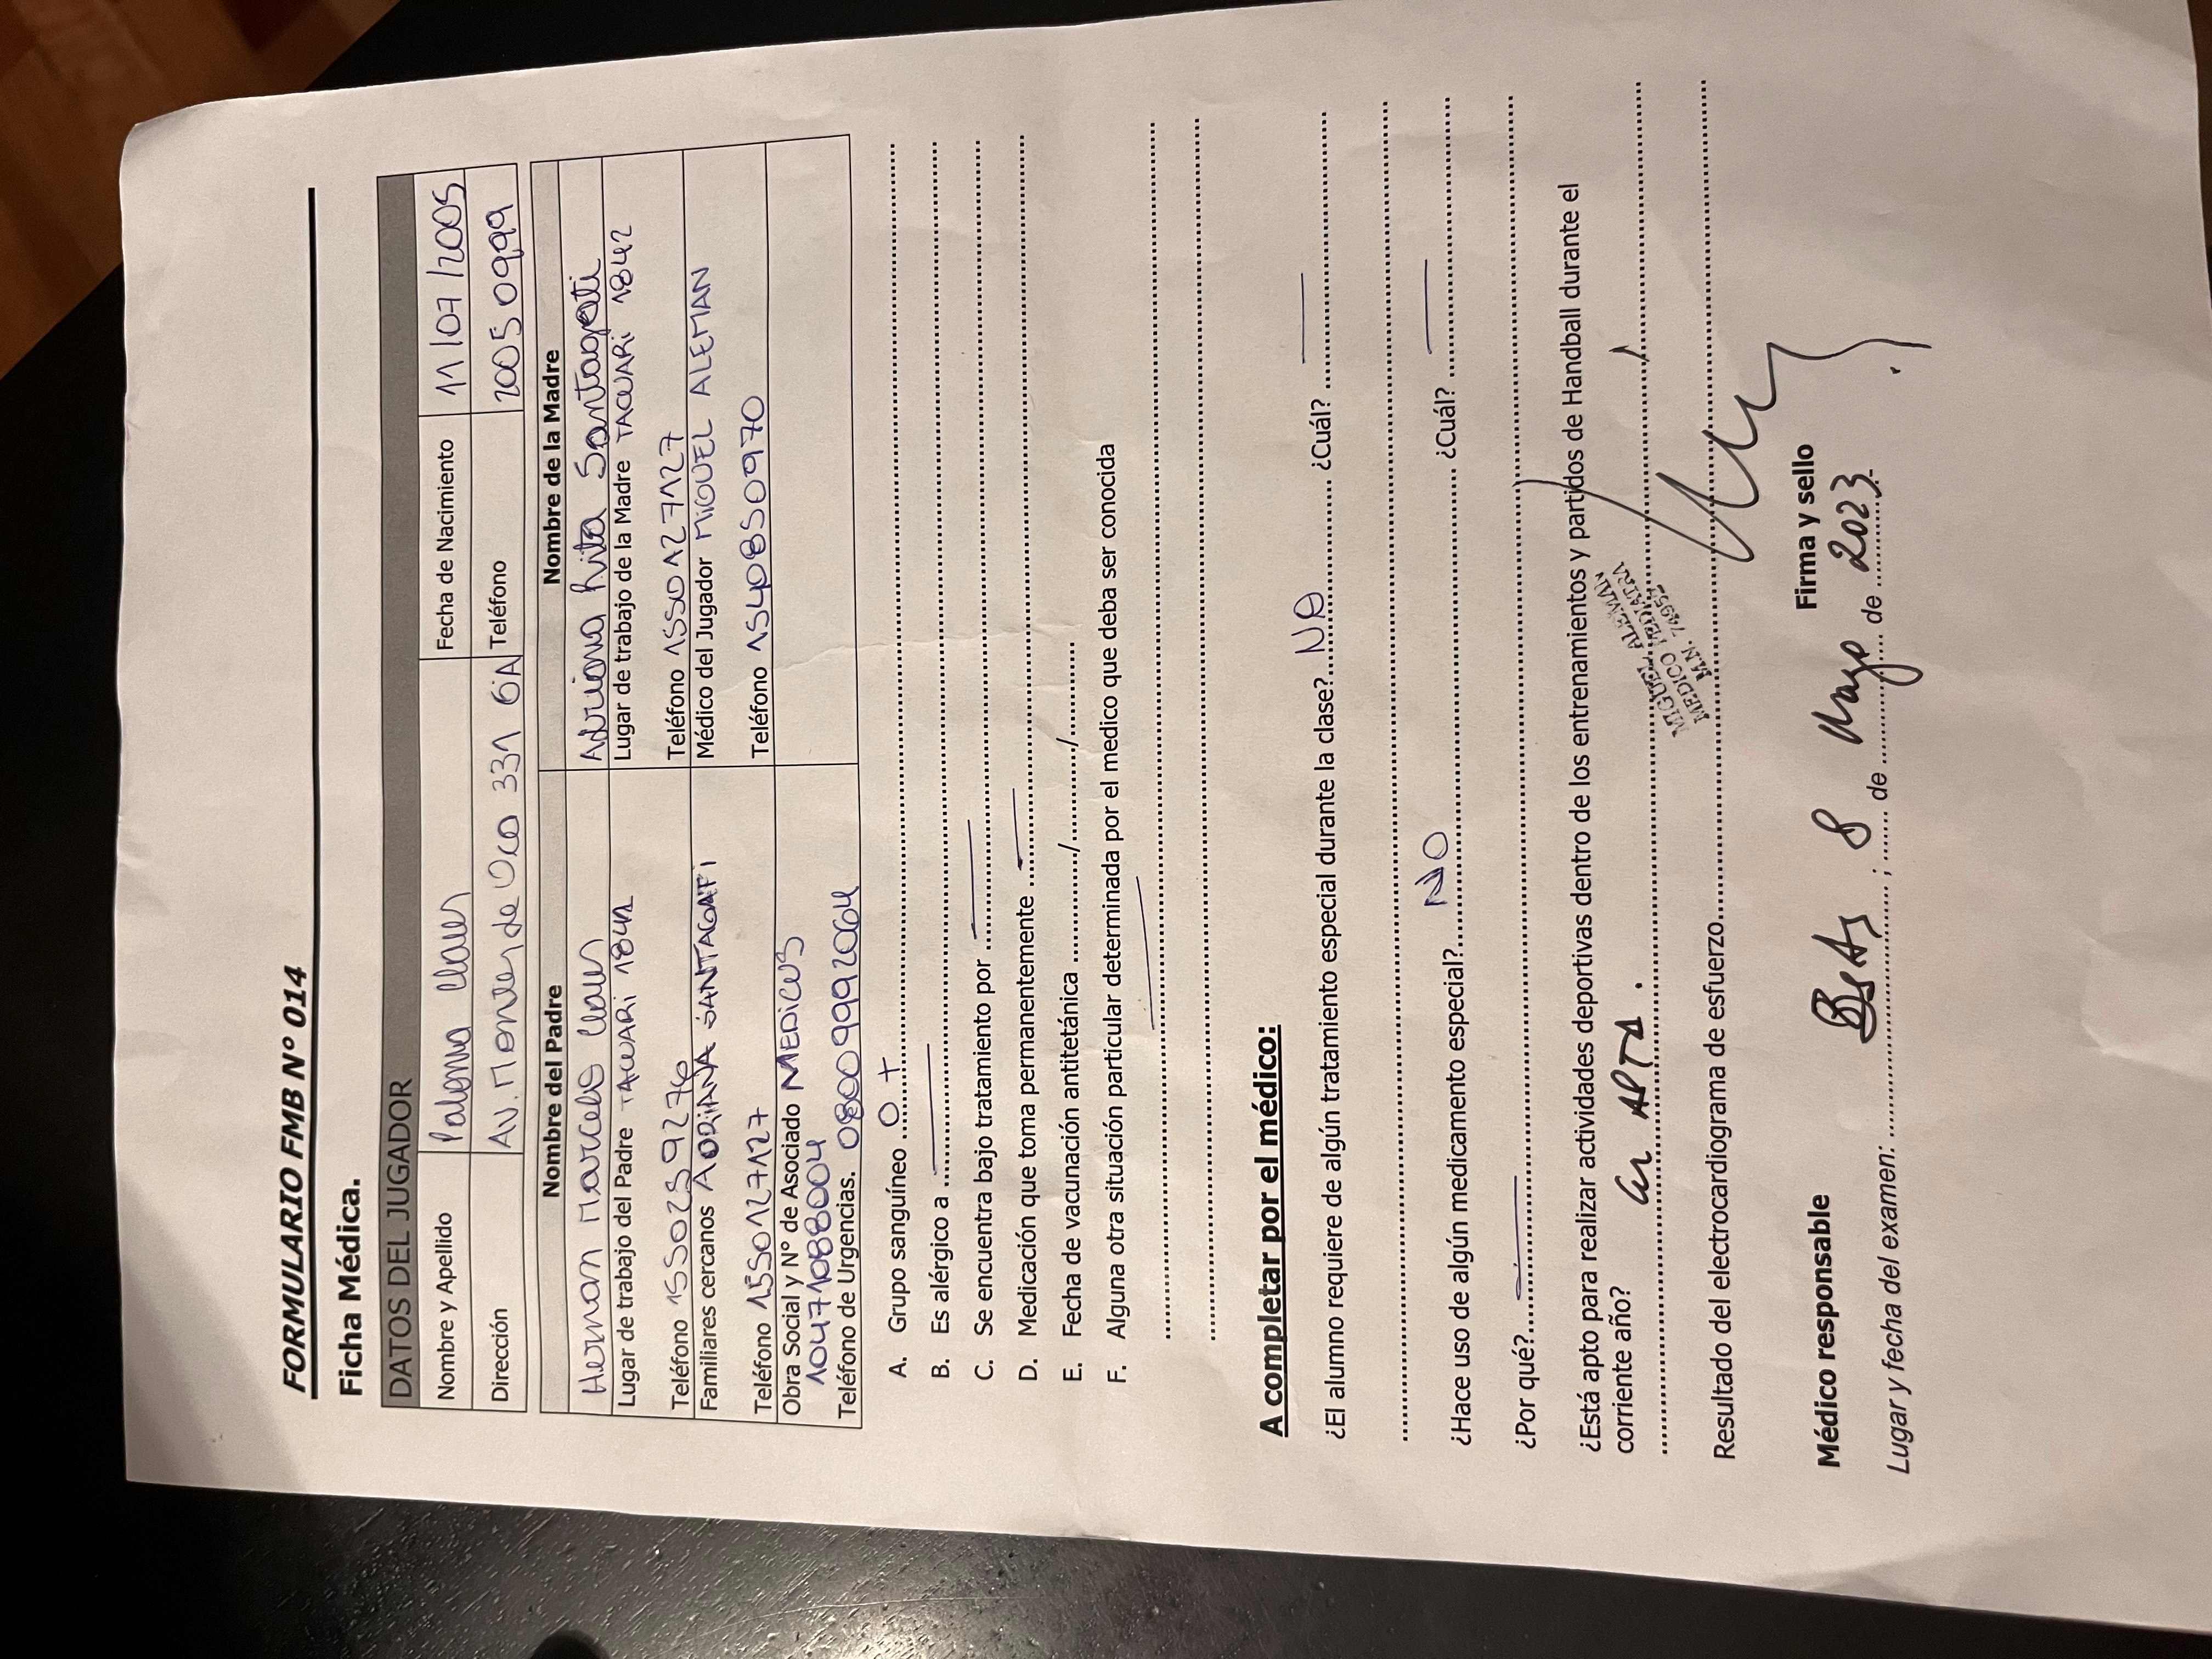 FORMULARIO FMB N° 014
Ficha Médica.
DATOS DEL JUGADOR
Nombre y Apellido Paloma Claus Fecha de Nacimiento 11/07/2005
Dirección AV. Montes de Oca 331 6A Teléfono 20050999
Nombre del Padre Nombre de la Madre
Hernan Marcelo Claus Adriana Rita Santagati
Lugar de trabajo del Padre TACUARI 1842 Lugar de trabajo de la Madre TACUARI 1842
Teléfono 1550259276 Teléfono 1550127127
Familiares cercanos ADRIANA SANTAGATI Médico del Jugador MIGUEL ALEMAN
Teléfono 1550127127 Teléfono 1540850970
Obra Social y N° de Asociado MEDICUS
10471088004
Teléfono de Urgencias. 08009992064
A. Grupo sanguíneo O +
B. Es alérgico a
C. Se encuentra bajo tratamiento por
D. Medicación que toma permanentemente
E. Fecha de vacunación antitetánica / /
F. Alguna otra situación particular determinada por el medico que deba ser conocida
A completar por el médico:
¿El alumno requiere de algún tratamiento especial durante la clase? NO ¿Cuál?
¿Hace uso de algún medicamento especial? NO ¿Cuál?
¿Por qué?
¿Está apto para realizar actividades deportivas dentro de los entrenamientos y partidos de Handball durante el
corriente año? APTA.
MIGUEL ALEMAN
MEDICO PEDIATRA
M.N. 74952
Resultado del electrocardiograma de esfuerzo
Médico responsable Firma y sello
Lugar y fecha del examen: BsAs ; 8 de Mayo de 2023.